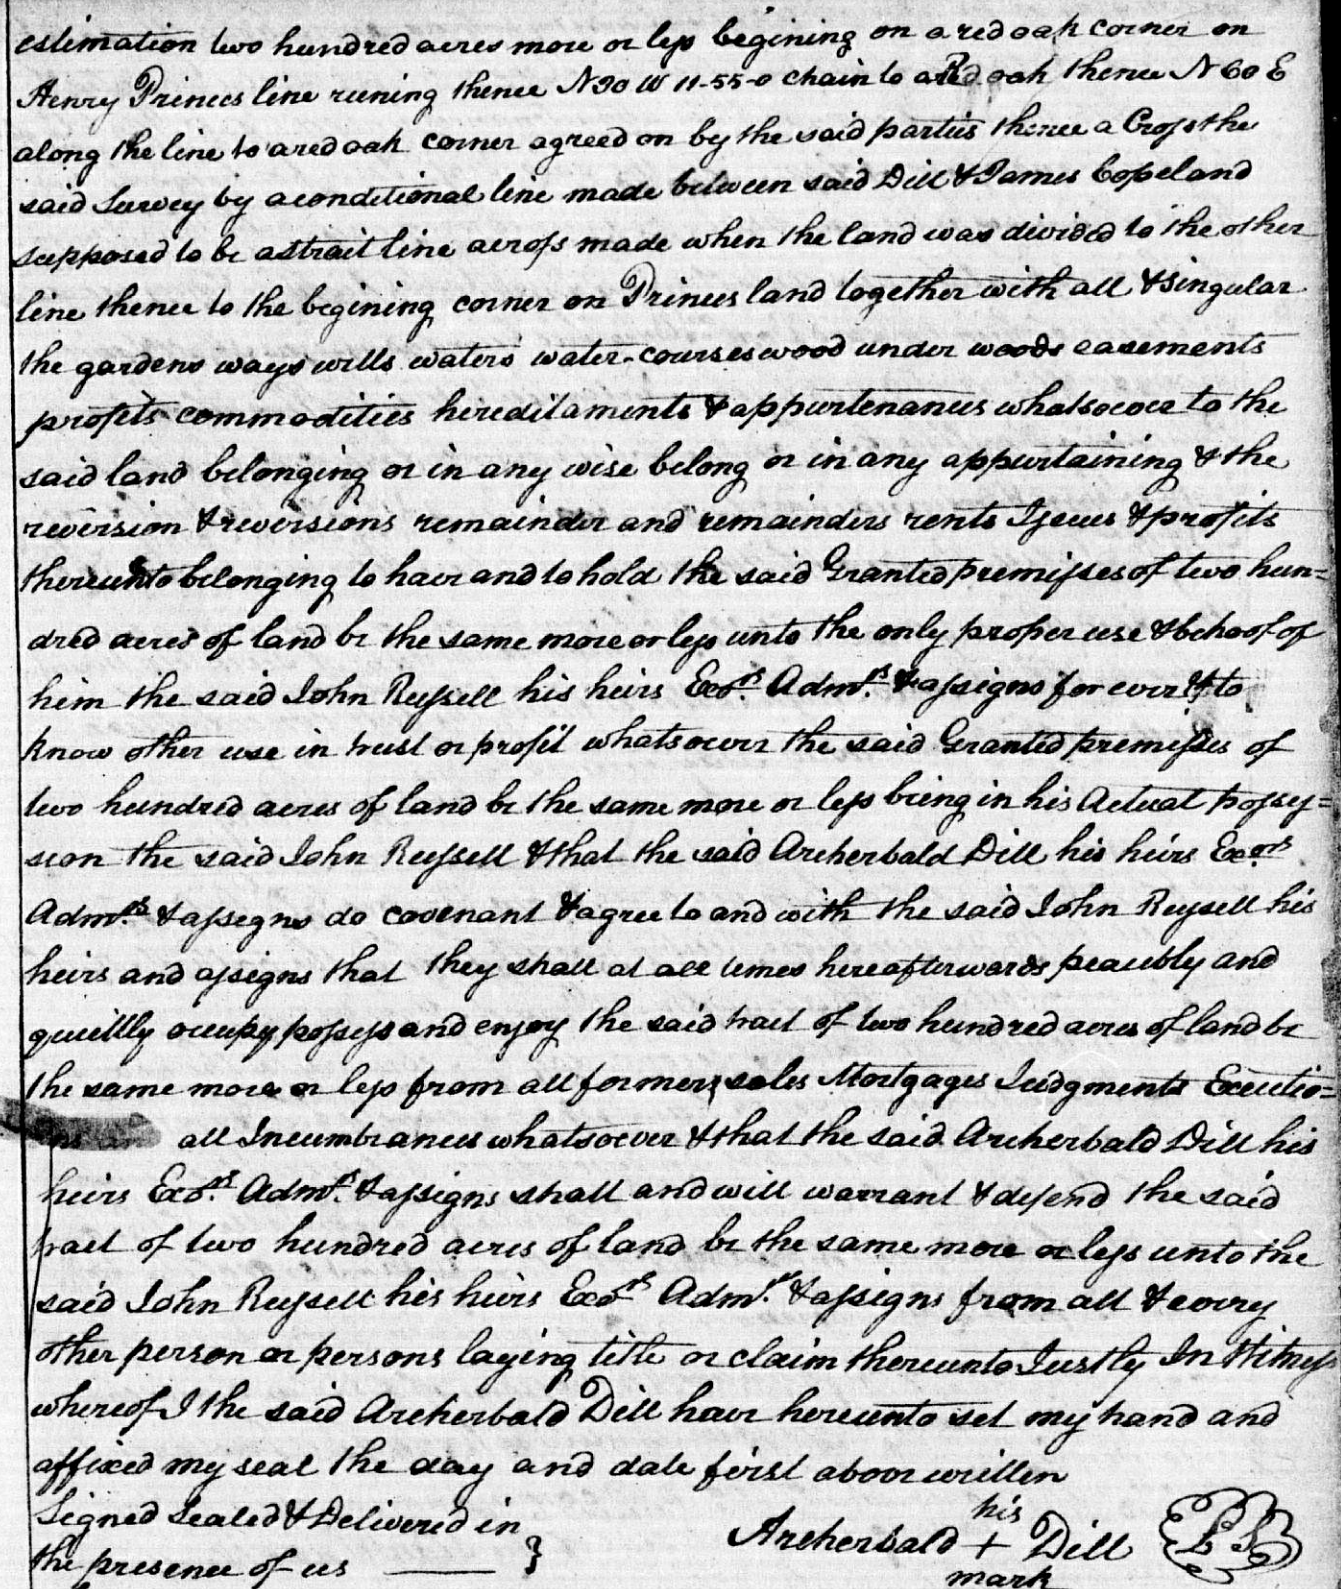 estimation two hundred acres more or less begining on a red oak corner on
Henry Princes line runing thence N30 W 11-55-0 chain to a Red oak thence N 60 E
along the line to a red oak corner agreed on by the said parties thence a Cross the
said Survey by a conditional line made between said Dill & James Copeland
supposed to be a strait line across made when the land was divided to the other
line thence to the begining corner on Princes land together with all & singular
the gardens ways wells waters water-courses wood under woods easements
profits commodities hereditaments & appurtenances whatsoever to the
said land belonging or in any wise belong or in any appurtaining & the
reversion & reversions remainder and remainders rents Issues & profits
thereunto belonging to have and to hold the said Granted premisses of two hun=
dred acres of land be the same more or less unto the only proper use & behoof of
him the said John Russell his heirs Exors Admrs & assigns for ever & to
know other use in trust or profit whatsoever the said Granted premisses of
two hundred acres of land be the same more or less being in his Actual posses=
sion the said John Russell & that the said Archerbald Dill his heirs Exors
Admrs & assigns do covenant & agree to and with the said John Russell his
heirs and assigns that they shall at all times hereafterwards peacebly and
quietly occupy possess and enjoy the said tract of two hundred acres of land be
the same more or less from all former sales Mortgages Judgments Executio=
ns an all Incumbrances whatsoever & that the said Archerbald Dill his
heirs Exors Admrs & assigns shall and will warrant & defend the said
tract of two hundred acres of land be the same more or less unto the
said John Russell his heirs Exors Admrs & assigns from all & every
other person or persons laying title or claim thereunto Justly In Witness
whereof I the said Archerbald Dill have hereunto set my hand and
affixed my seal the day and date first above written
Signed Sealed & Delivered in
the presence of us }
his
Archerbald + Dill LS
mark